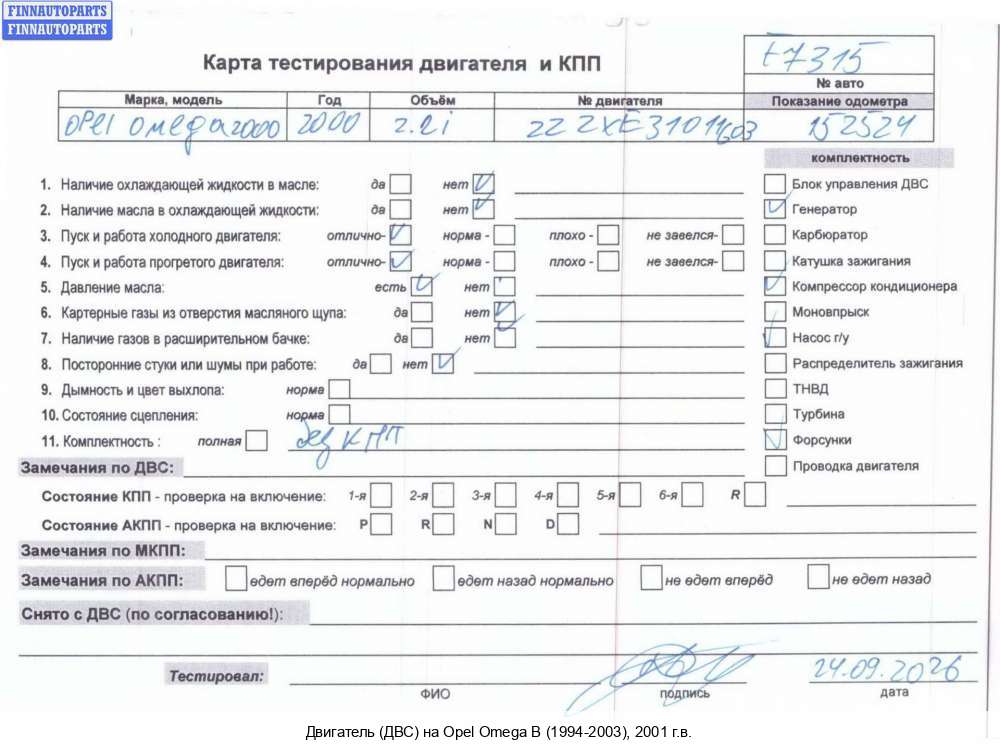 FINNAUTOPARTS
FINNAUTOPARTS
Карта тестирования двигателя и КПП
F7315
№ авто
Марка, модель Год Объём № двигателя Показание одометра
OPEL Omega 2000 2000 2.2i Z22XE31011603 152524
комплектность
1. Наличие охлаждающей жидкости в масле: да нет Блок управления ДВС
2. Наличие масла в охлаждающей жидкости: да нет Генератор
3. Пуск и работа холодного двигателя: отлично- норма - плохо - не завелся- Карбюратор
4. Пуск и работа прогретого двигателя: отлично- норма - плохо - не завелся- Катушка зажигания
5. Давление масла: есть нет Компрессор кондиционера
6. Картерные газы из отверстия масляного щупа: да нет Моновпрыск
7. Наличие газов в расширительном бачке: да нет Насос г/у
8. Посторонние стуки или шумы при работе: да нет Распределитель зажигания
9. Дымность и цвет выхлопа: норма ТНВД
10. Состояние сцепления: норма Турбина
11. Комплектность : полная без КПП Форсунки
Замечания по ДВС: Проводка двигателя
Состояние КПП - проверка на включение: 1-я 2-я 3-я 4-я 5-я 6-я R
Состояние АКПП - проверка на включение: P R N D
Замечания по МКПП:
Замечания по АКПП: едет вперёд нормально едет назад нормально не едет вперёд не едет назад
Снято с ДВС (по согласованию!):
Тестировал: 24.09.2026
ФИО подпись дата
Двигатель (ДВС) на Opel Omega B (1994-2003), 2001 г.в.